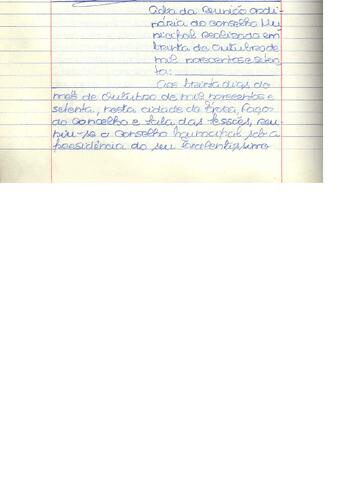 Acta da reunião ordi-
nária do conselho Mu-
nicipal realizada em
trinta de Outubro de
mil novecentos e seten-
ta:
Aos trinta dias do
mês de Outubro de mil novecentos e
setenta, nesta cidade da Praia, Paços
do Concelho e sala das sessões, reu-
niu-se o Conselho Municipal sob a
presidência do seu